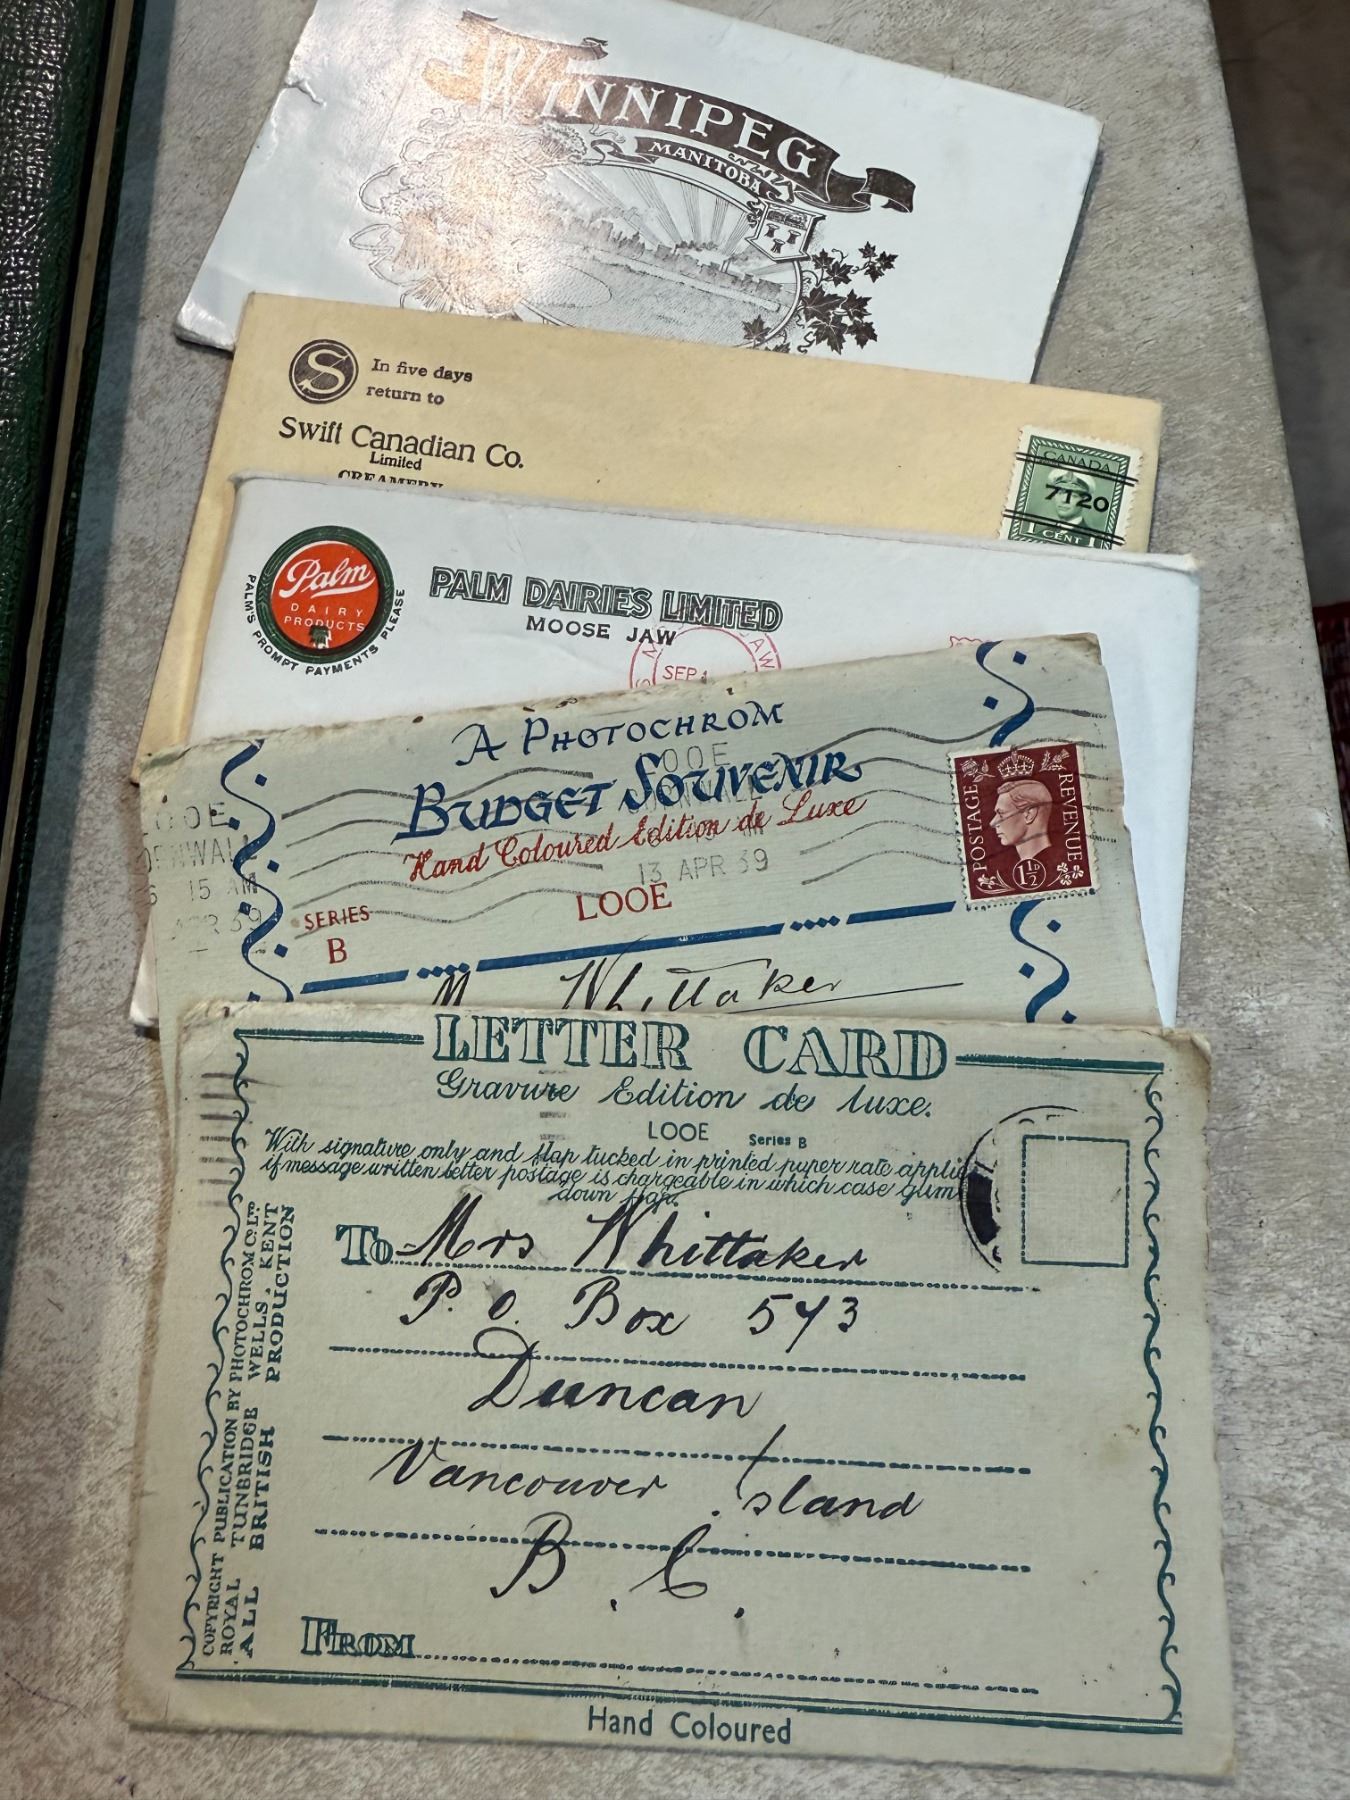 WINNIPEG
MANITOBA
S
In five days
return to
Swift Canadian Co.
Limited
CREAMERY
CANADA
7120
1 CENT 1
Palm
DAIRY
PRODUCTS
PALM'S PROMPT PAYMENTS PLEASE
PALM DAIRIES LIMITED
MOOSE JAW
SEP
A PHOTOCHROM
BUDGET SOUVENIR
Hand Coloured Edition de Luxe
LOOE
13 APR 39
15 AM
SERIES
B
LOOE
POSTAGE
REVENUE
1½D
Whittaker
LETTER CARD
Gravure Edition de luxe.
LOOE Series B
With signature only and flap tucked in printed paper rate
if message written letter postage is chargeable in which case gum
down flap.
To Mrs Whittaker
P. O. Box 543
Duncan
Vancouver Island
B. C.
FROM
Hand Coloured
COPYRIGHT PUBLICATION BY PHOTOCHROM CO. LTD.
ROYAL TUNBRIDGE WELLS. KENT
ALL BRITISH PRODUCTION